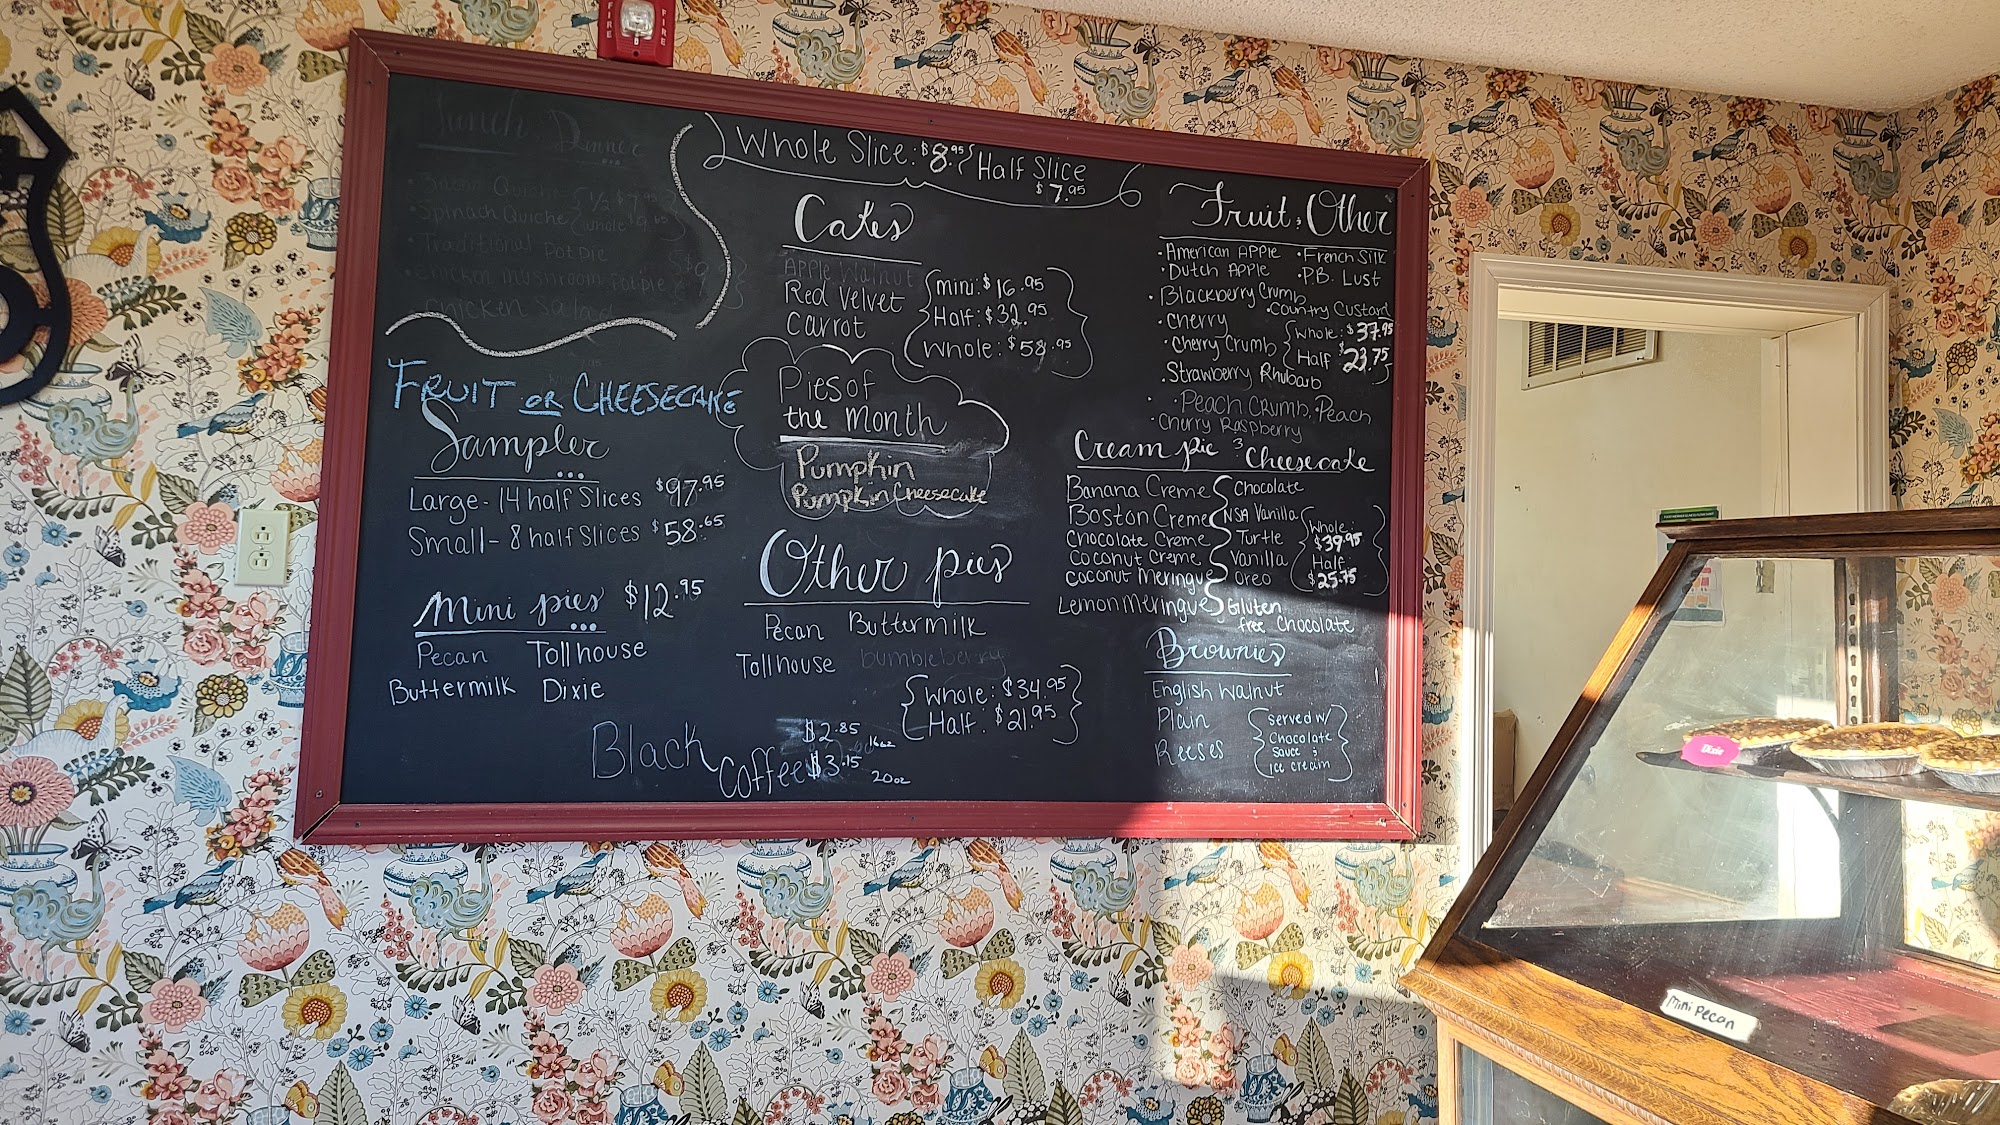 FIRE
FIRE
Lunch Dinner
• Bacon Quiche
• Spinach Quiche
1/2 $7.95
whole 9.65
• Traditional Pot Pie
• Chicken Mushroom Potpie
Chicken Salad
Whole Slice: $8.95
Half Slice
$7.95
Cakes
Apple Walnut
Red Velvet
Carrot
mini: $16.95
Half: $32.95
Whole: $58.95
Fruit & Other
• American Apple
• French Silk
• Dutch Apple
• P.B. Lust
• Blackberry Crumb
• Country Custard
• Cherry
• Cherry Crumb
Whole: $37.95
Half $23.75
• Strawberry Rhubarb
• Peach Crumb, Peach
• Cherry Raspberry
Fruit or Cheesecake
Sampler
Large - 14 half Slices $97.95
Small - 8 half Slices $58.65
Pies of
the Month
Pumpkin
Pumpkin Cheesecake
Cream pie & Cheesecake
Banana Creme
Boston Creme
Chocolate Creme
Coconut Creme
Coconut Meringue
Lemon Meringue
Chocolate
NSA Vanilla
Turtle
Vanilla
Oreo
Gluten
free Chocolate
Whole:
$39.95
Half
$25.75
Mini pies $12.95
Pecan Tollhouse
Buttermilk Dixie
Other pies
Pecan Buttermilk
Tollhouse bumbleberry
Whole: $34.95
Half: $21.95
Brownies
English Walnut
Plain
Reeses
served w/
Chocolate
Sauce &
ice cream
Black
Coffee
$2.85 16oz
$3.15 20oz
Dixie
Mini Pecan